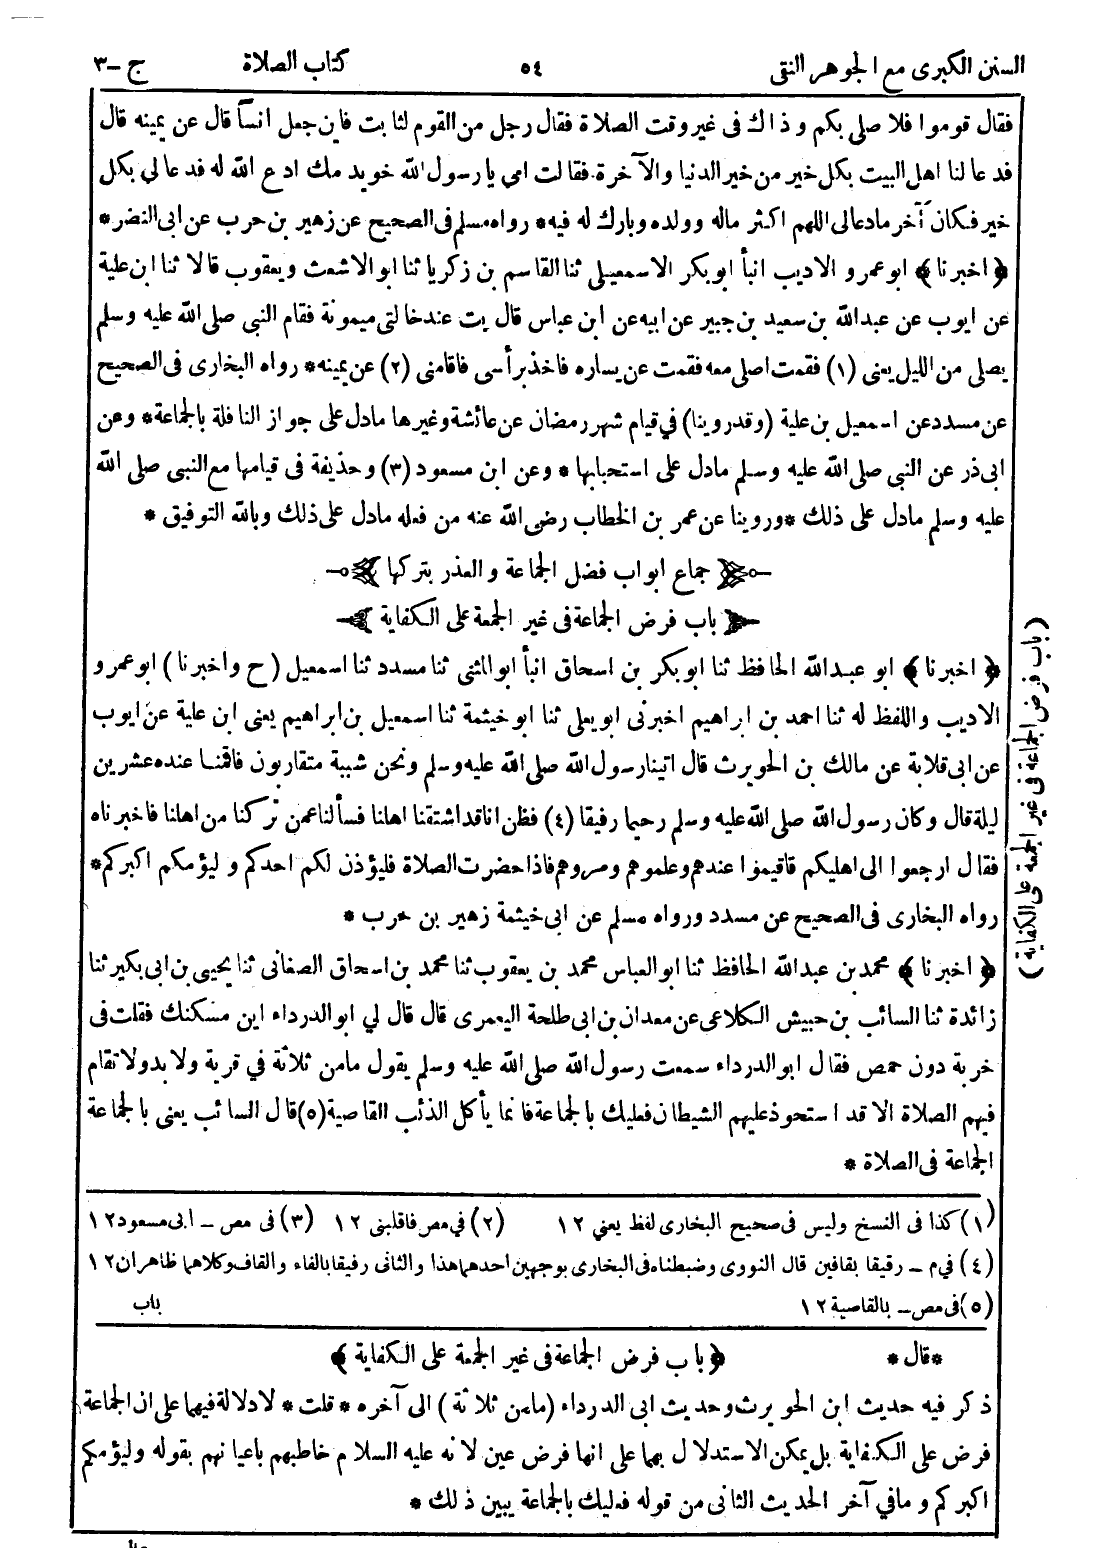 السنن الكبرى مع الجوهر النقى ٥٤ كتاب الصلاة ج ـ ٣
فقال قوموا فلاصلى بكم وذاك فى غير وقت الصلاة فقال رجل من القوم لثابت فاين جعل انسا قال عن يمينه قال
فدعا لنا اهل البيت بكل خير من خير الدنيا والآخرة . فقالت امى يا رسول الله خويدمك ادع الله له فدعا لي بكل
خير فكان آخر ما دعا لى اللهم اكثر ماله وولده وبارك له فيه * رواه مسلم فى الصحيح عن زهير بن حرب عن ابى النضر *
﴿ اخبرنا ﴾ ابو عمرو الاديب انبأ ابو بكر الاسمعيلى ثنا القاسم بن زكريا ثنا ابو الاشعث ويعقوب قالا ثنا ابن علية
عن ايوب عن عبد الله بن سعيد بن جبير عن ابيه عن ابن عباس قال بت عند خالتى ميمونة فقام النبى صلى الله عليه وسلم
يصلى من الليل يعنى (١) فقمت اصلى معه فقمت عن يساره فاخذ برأسى فاقامنى (٢) عن يمينه * رواه البخارى فى الصحيح
عن مسدد عن اسمعيل بن علية (وقد روينا) في قيام شهر رمضان عن عائشة وغيرها ما دل على جواز النافلة بالجماعة * وعن
ابى ذر عن النبى صلى الله عليه وسلم ما دل على استحبابها * وعن ابن مسعود (٣) وحذيفة فى قيامها مع النبى صلى الله
عليه وسلم ما دل على ذلك * وروينا عن عمر بن الخطاب رضى الله عنه من فعله ما دل على ذلك وبالله التوفيق *
جماع ابواب فضل الجماعة والعذر بتركها
باب فرض الجماعة فى غير الجمعة على الكفاية
﴿ اخبرنا ﴾ ابو عبد الله الحافظ ثنا ابو بكر بن اسحاق انبأ ابو المثنى ثنا مسدد ثنا اسمعيل (ح واخبرنا) ابو عمرو
الاديب واللفظ له ثنا احمد بن ابراهيم اخبرنى ابو يعلى ثنا ابو خيثمة ثنا اسمعيل بن ابراهيم يعنى ابن علية عن ايوب
عن ابى قلابة عن مالك بن الحويرث قال اتينا رسول الله صلى الله عليه وسلم ونحن شببة متقاربون فاقمنا عنده عشرين
ليلة قال وكان رسول الله صلى الله عليه وسلم رحيما رفيقا (٤) فظن انا قد اشتقنا اهلنا فسألنا عمن تركنا من اهلنا فاخبرناه
فقال ارجعوا الى اهليكم فاقيموا عندهم وعلموهم ومروهم فاذا حضرت الصلاة فليؤذن لكم احدكم وليؤمكم اكبركم *
رواه البخارى فى الصحيح عن مسدد ورواه مسلم عن ابى خيثمة زهير بن حرب *
﴿ اخبرنا ﴾ محمد بن عبد الله الحافظ ثنا ابو العباس محمد بن يعقوب ثنا محمد بن اسحاق الصغانى ثنا يحيى بن ابى بكير ثنا
زائدة ثنا السائب بن حبيش الكلاعى عن معدان بن ابى طلحة اليعمرى قال قال لي ابو الدرداء اين مسكنك فقلت فى
خربة دون حمص فقال ابو الدرداء سمعت رسول الله صلى الله عليه وسلم يقول ما من ثلاثة في قرية ولا بدو لا تقام
فيهم الصلاة الا قد استحوذ عليهم الشيطان فعليك بالجماعة فانما يأكل الذئب القاصية (٥) قال السائب يعنى بالجماعة
الجماعة فى الصلاة *
(باب فرض الجماعة فى غير الجمعة على الكفاية)
(١) كذا فى النسخ وليس فى صحيح البخارى لفظ يعني ١٢ (٢) في مص فاقلبنى ١٢ (٣) فى مص ـ ابى مسعود ١٢
(٤) في م ـ رقيقا بقافين قال النووى وضبطناه فى البخارى بوجهين احدهما هذا والثانى رفيقا بالفاء والقاف وكلاهما ظاهران ١٢
(٥) فى مص ـ بالقاصية ١٢ باب
* قال * ﴿ باب فرض الجماعة فى غير الجمعة على الكفاية ﴾
ذكر فيه حديث ابن الحويرث وحديث ابى الدرداء (ما من ثلاثة) الى آخره * قلت * لا دلالة فيهما على ان الجماعة
فرض على الكفاية بل يمكن الاستدلال بهما على انها فرض عين لانه عليه السلام خاطبهم باعيانهم بقوله وليؤمكم
اكبركم وما في آخر الحديث الثانى من قوله فعليك بالجماعة يبين ذلك *